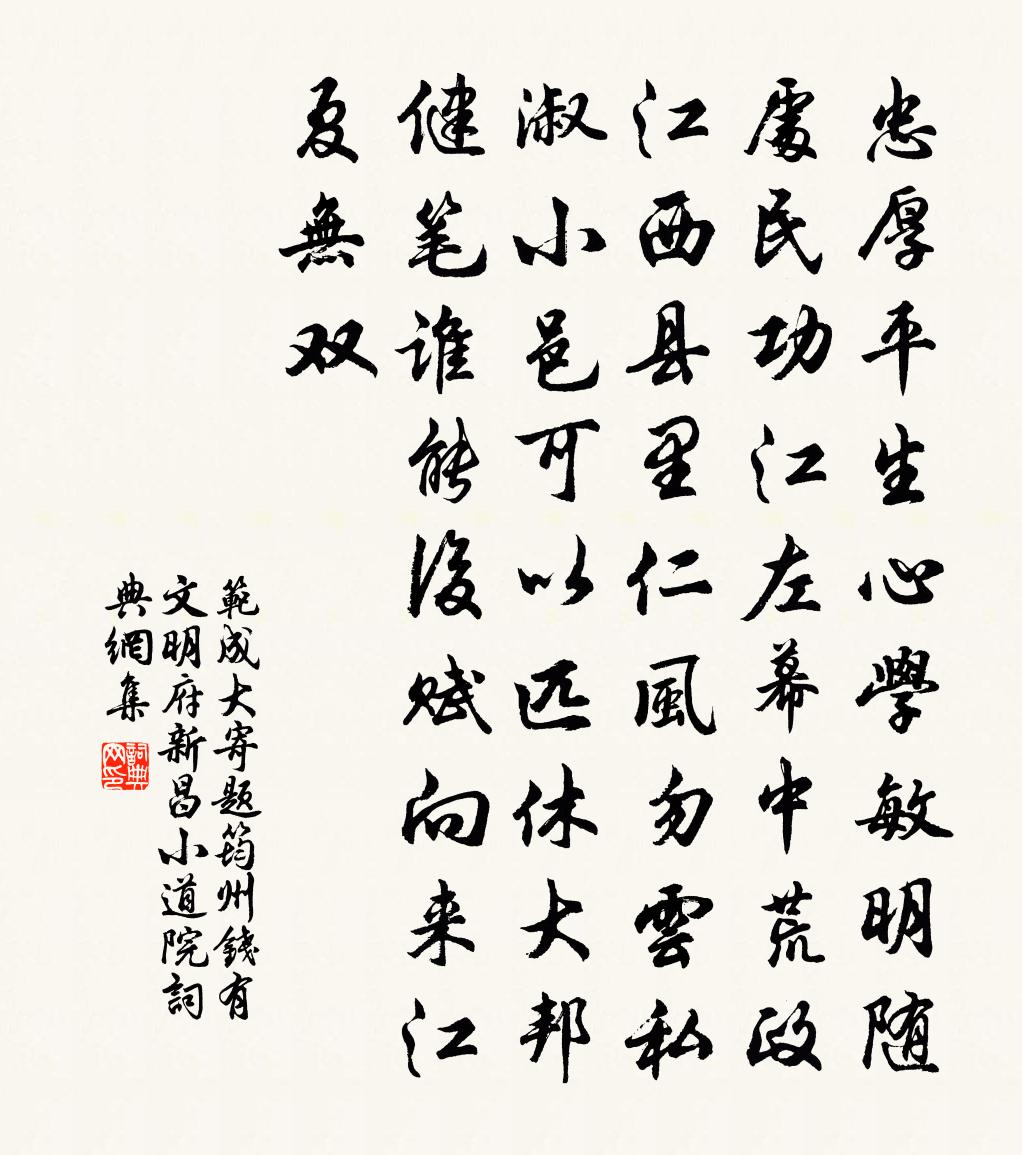 忠厚平生心學敏明随
處民功江左幕中荒政
江西县里仁風勿雲私
淑小邑可以匹休大邦
健笔谁能後赋向来江
夏無双
範成大寄题筠州錢有
文明府新昌小道院詞
典網集
詞典网印